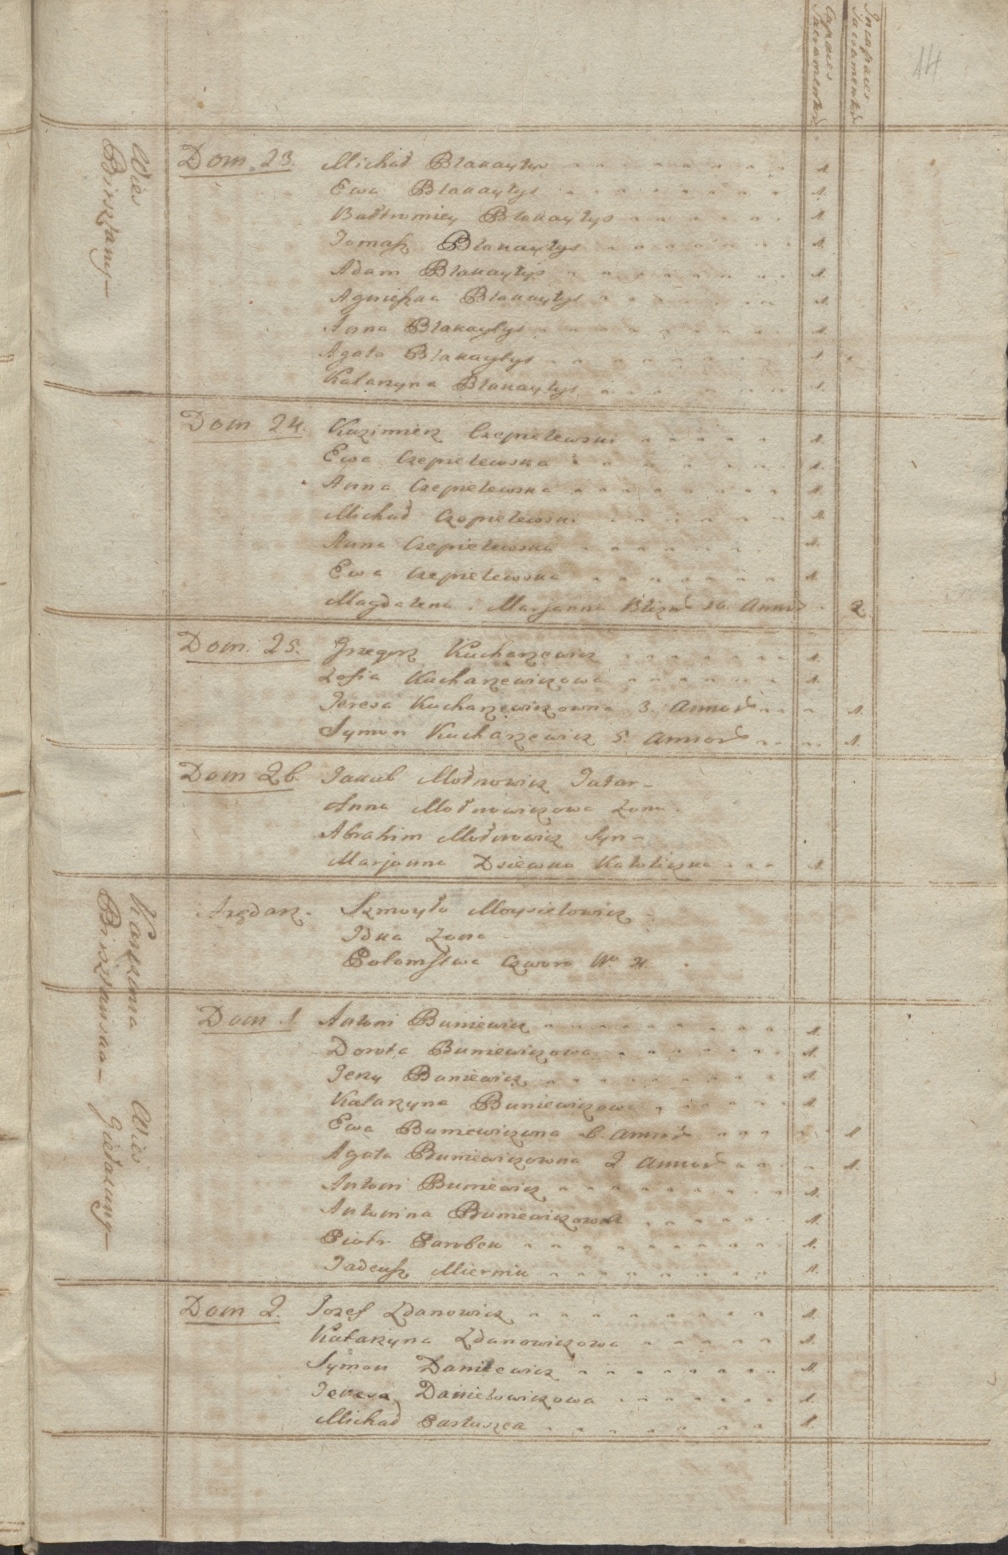 Capaces Sacramentor.
Incapaces Sacamentor
14
Wieś
Birsztany
Dom. 23. Michał Blakaytys 1.
Ewa Blakaytys 1.
Bałtromiey Blakaytys 1.
Tomasz Blakaytys 1.
Adam Blakaytys 1.
Agnieszka Blakaytys 1.
Anna Blakaytys 1.
Agata Blakaytys 1.
Katarzyna Blakaytys 1.
Dom 24. Kazimierz Czepielewski 1.
Ewa Czepielewska 1.
Anna Czepielewska 1.
Michał Czepielewski 1.
Anna Czepielewska 1.
Ewa Czepielewska 1.
Magdalena, Marjanna Annor 2
Dom. 25. Grzegorz Kucharzewicz 1.
Zofia Kucharzewiczowa 1.
Teresa Kucharzewiczowna 3. Annor 1.
Symon Kucharzewicz 5. Annor 1.
Dom 26. Jakub Mołnowicz Tatar
Anna Mołnowiczowa Zona
Abrahim Mołnowicz Syn
Marjanna Katoliczka 1
Karczma
Birsztańska
Arędarz. Szmoyło Moysielowicz
Idka Zona
Potomstwa Czworo No 4.
Wieś
Giełaluny
Dom 1 Antoni Buniewicz 1.
Dorota Buniewiczowa 1.
Jerzy Buniewicz 1.
Katarzyna Buniewiczowa 1.
Ewa Buniewiczowna 6 Annor 1
Agata Buniewiczowna 2 Annor 1.
Antoni Buniewicz 1.
Antonina Buniewiczowna 1.
Piotr Parobek 1.
Tadeusz 1.
Dom 2. Jozef Zdanowicz 1.
Katarzyna Zdanowiczowa 1.
Symon Danilewicz 1.
Teresa Danielowiczowa 1.
Michał Pastuszek 1.